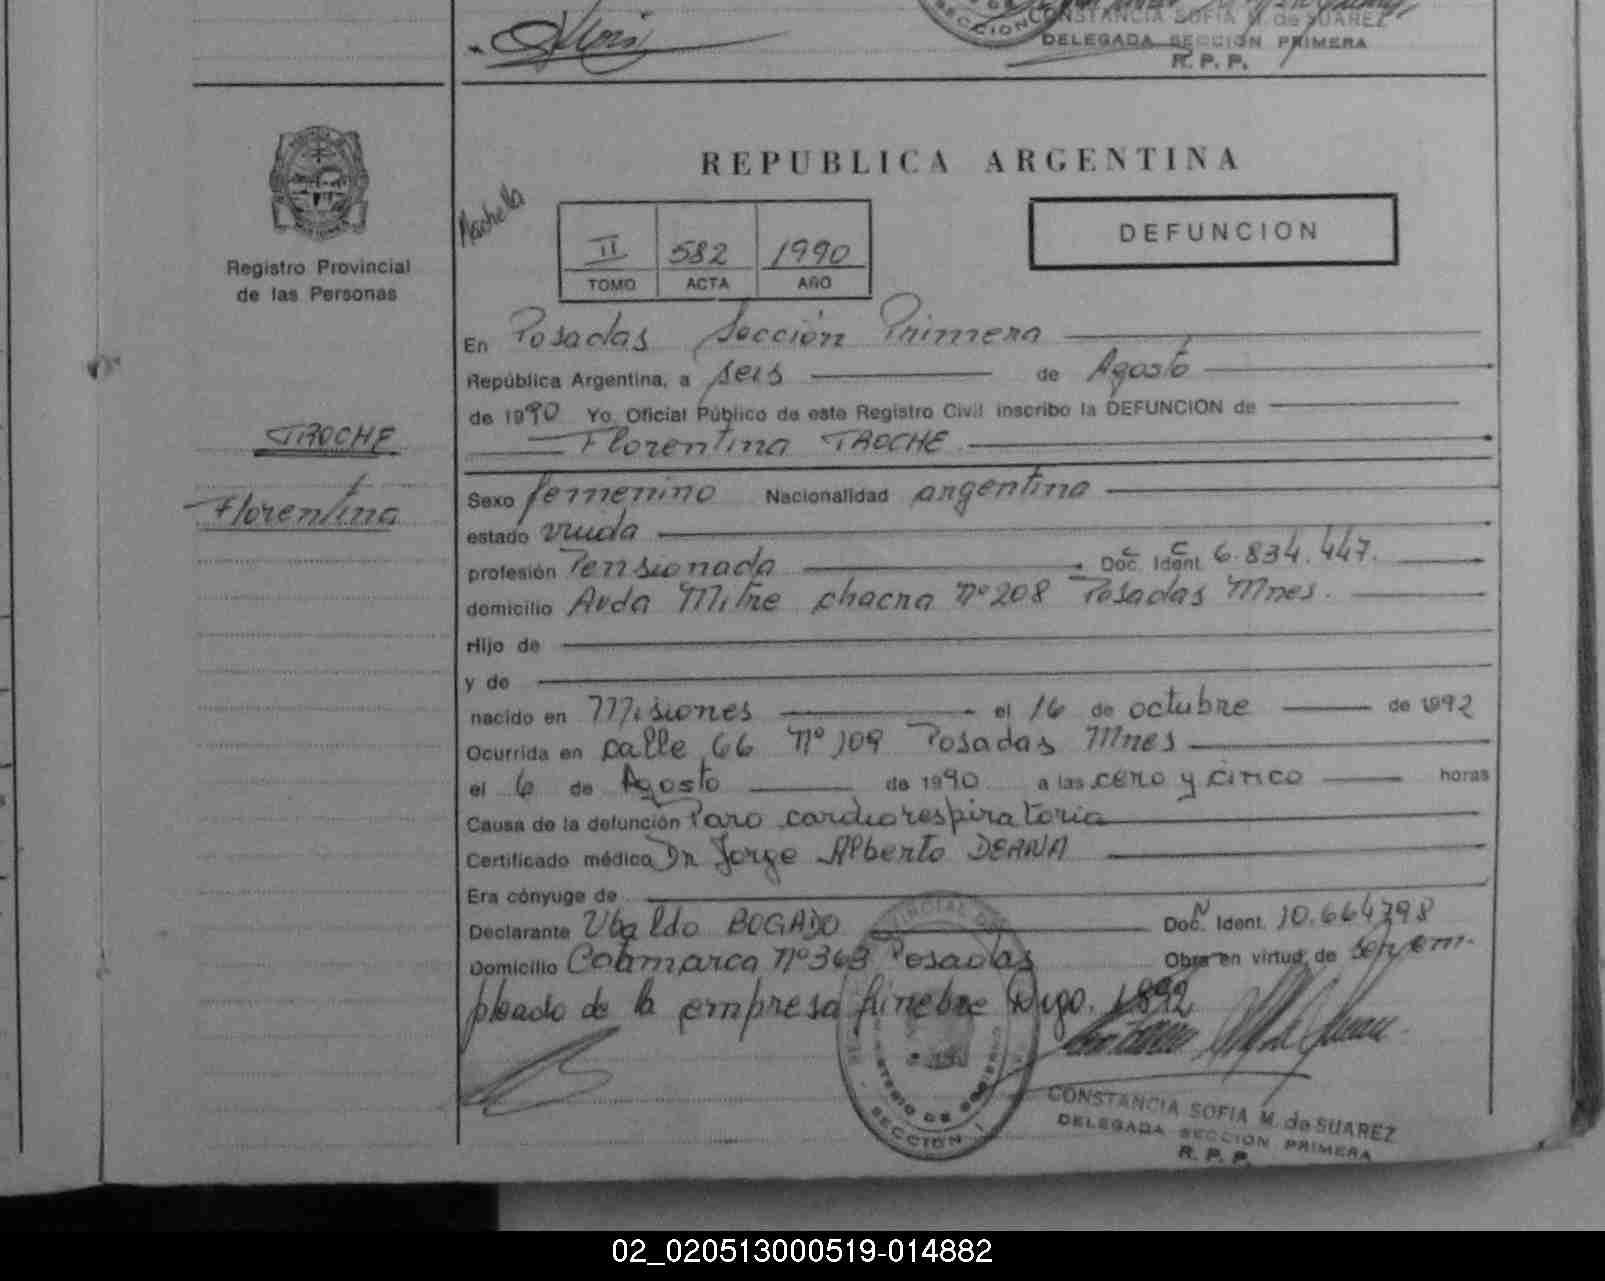 CONSTANCIA SOFIA M. de SUAREZ
DELEGADA SECCION PRIMERA
R. P. P.
SECCION
REPUBLICA ARGENTINA
Registro Provincial
de las Personas
II 582 1990
TOMO ACTA AÑO
DEFUNCION
En Posadas Sección Primera
República Argentina, a seis de Agosto
de 1990 Yo, Oficial Público de este Registro Civil inscribo la DEFUNCION de
Florentina TROCHE
TROCHE
Florentina
Sexo femenino Nacionalidad argentina
estado viuda
profesión Pensionada Doc. Ident. C C 6.834.447.
domicilio Avda Mitre chacra Nº 208 Posadas Mnes.
Hijo de
y de
nacido en Misiones el 16 de octubre de 1892
Ocurrida en calle 66 Nº 109 Posadas Mnes
el 6 de Agosto de 1990 a las cero y cinco horas
Causa de la defunción Paro cardiorespiratoria
Certificado médico Dr Jorge Alberto DEANA
Era cónyuge de
Declarante Ubaldo BOGADO Doc. Ident. N 10.664798
Domicilio Catamarca Nº 363 Posadas Obra en virtud de ser em-
pleado de la empresa fúnebre Digo. 1892
SECCION I
CONSTANCIA SOFIA M. de SUAREZ
DELEGADA SECCION PRIMERA
R. P. P.
02_020513000519-014882